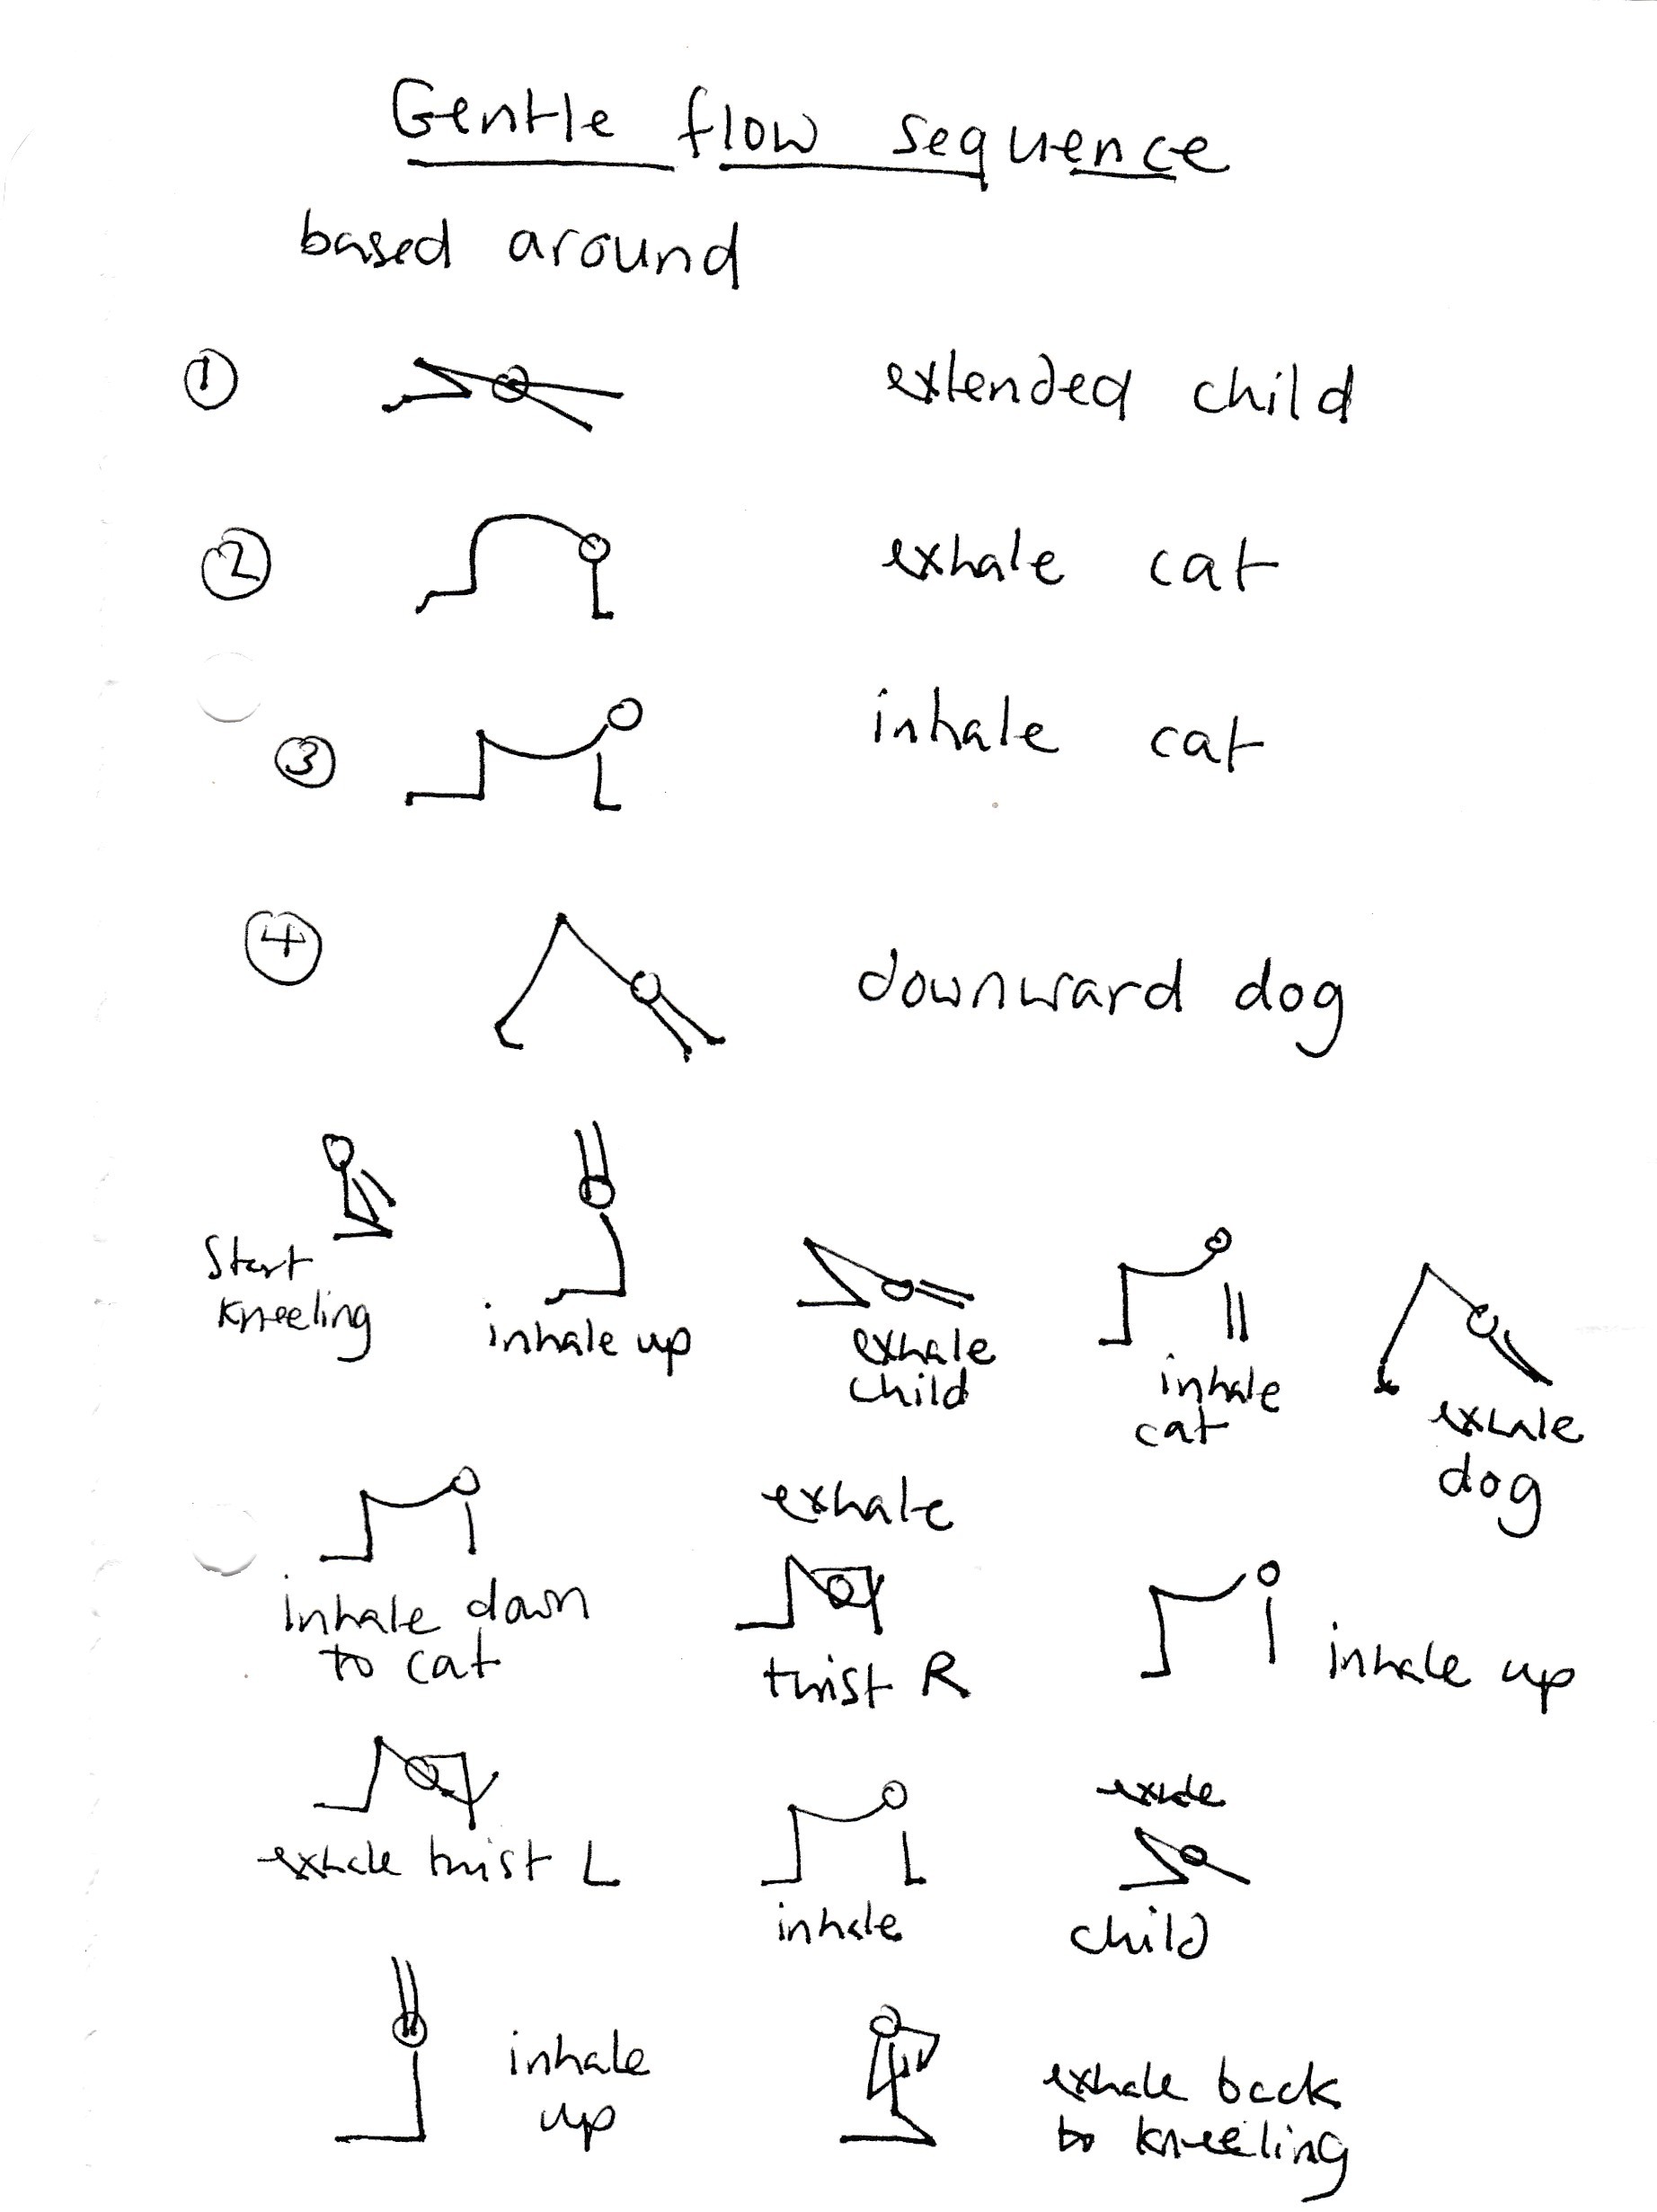 Gentle flow sequence
based around
① extended child
② exhale cat
③ inhale cat
④ downward dog
Start
kneeling
inhale up
exhale
child
inhale
cat
exhale
dog
inhale down
to cat
exhale
twist R
inhale up
exhale twist L
inhale
exhale
child
inhale
up
exhale back
to kneeling